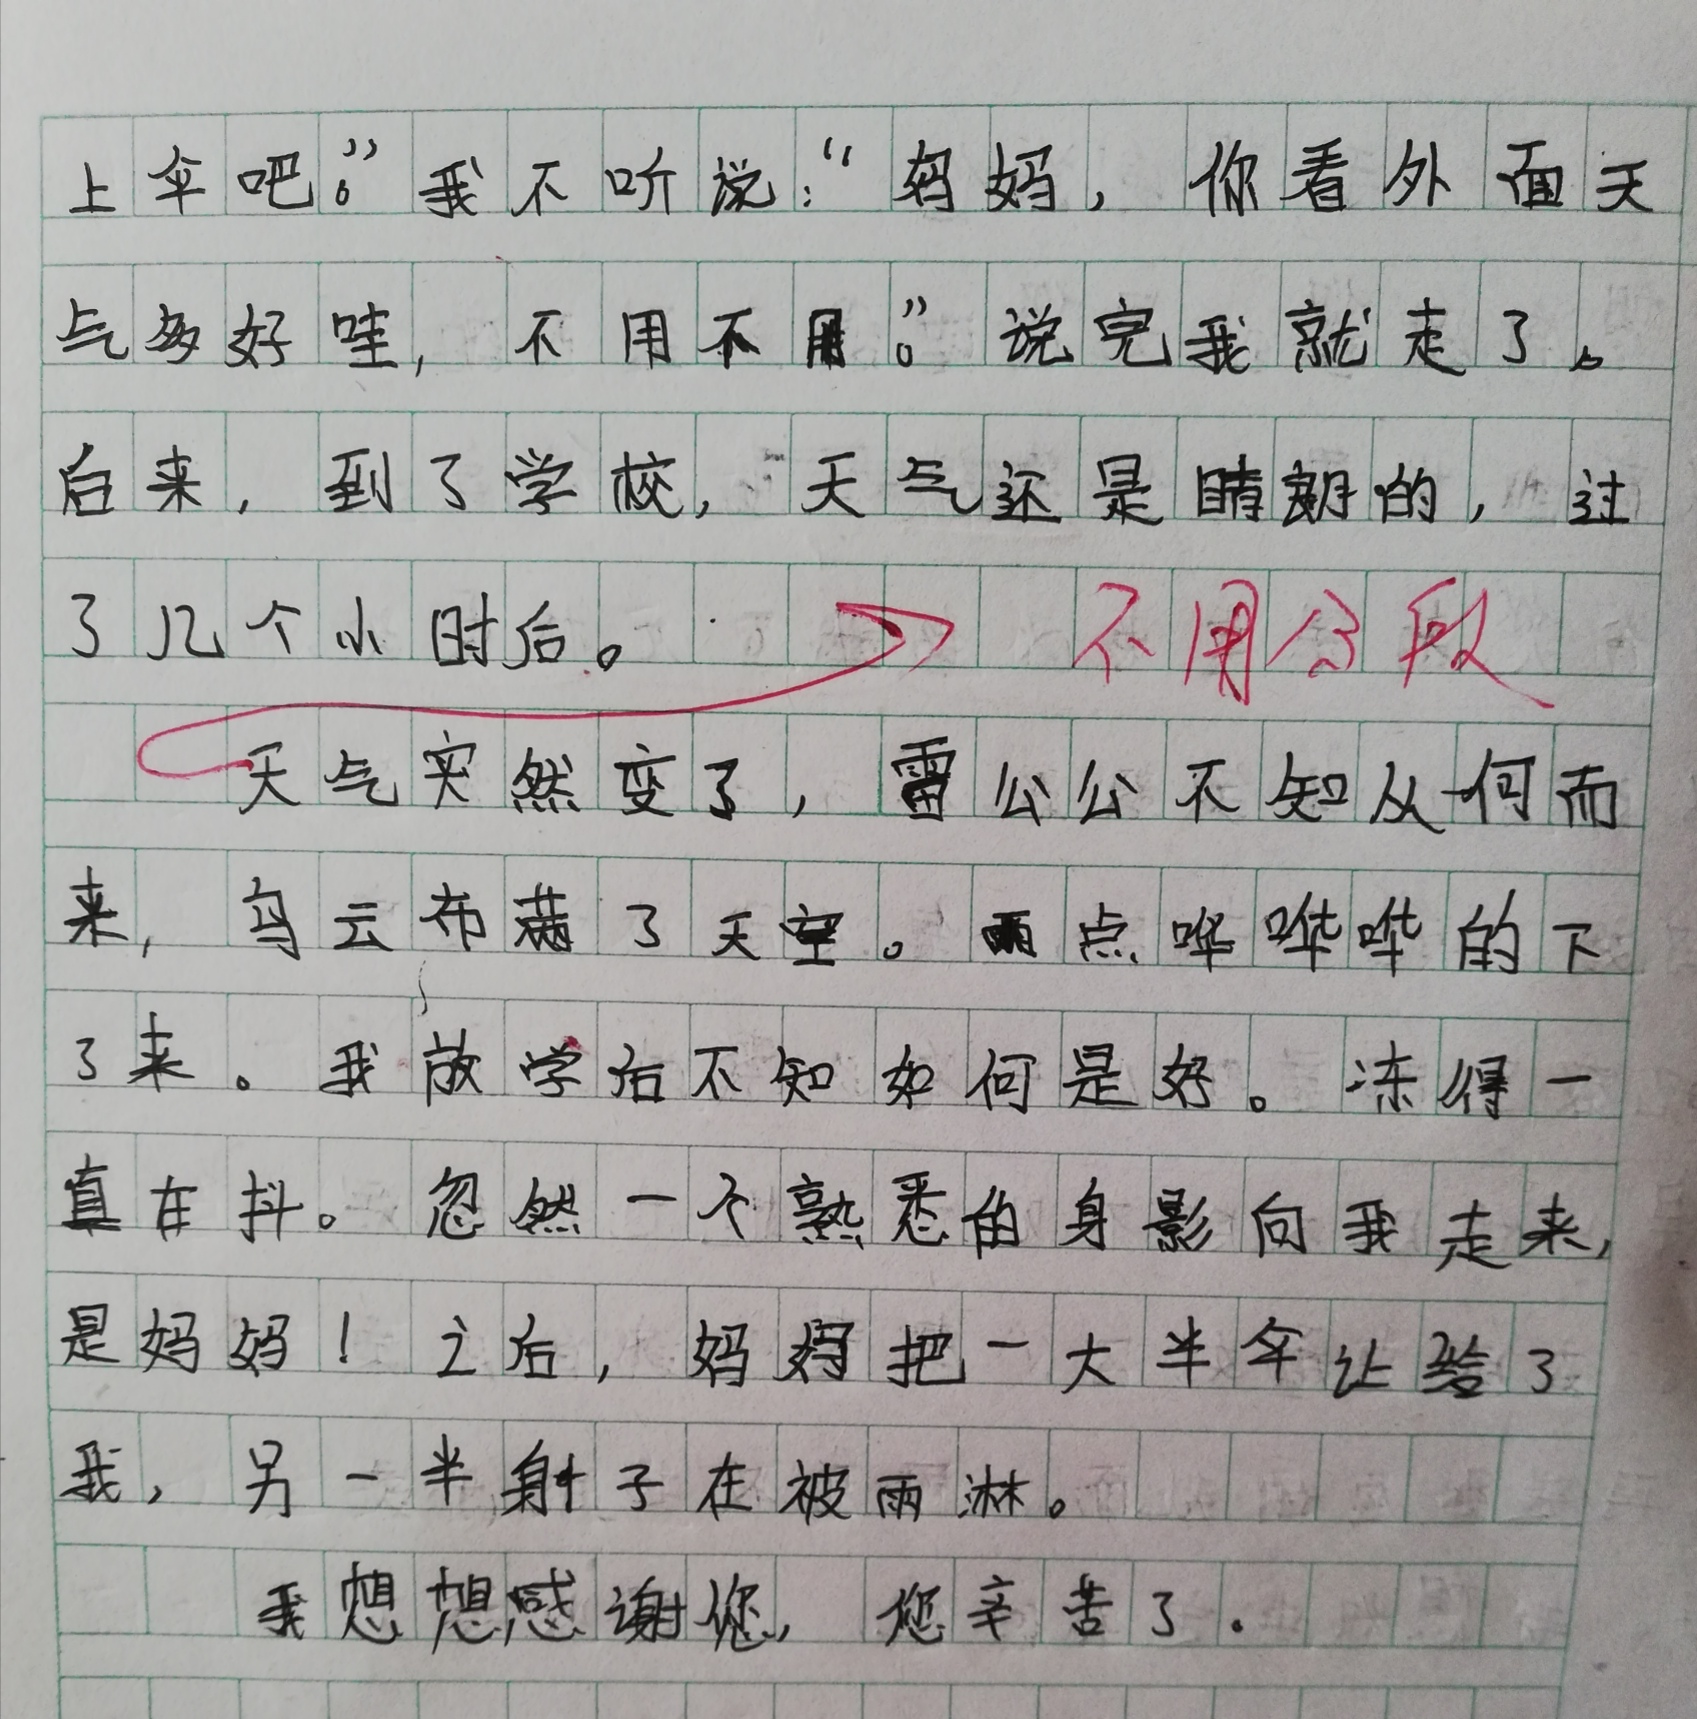 上伞吧。”我不听说：“妈妈，你看外面天
气多好哇，不用不用。”说完我就走了。
后来，到了学校，天气还是晴朗的，过
了几个小时后。
不用分段
天气突然变了，雷公公不知从何而
来，乌云布满了天空。雨点哗哗哗的下
了来。我放学后不知如何是好。冻得一
直在抖。忽然一个熟悉的身影向我走来，
是妈妈！之后，妈妈把一大半伞让给了
我，另一半身子在被雨淋。
我想想感谢您，您辛苦了.